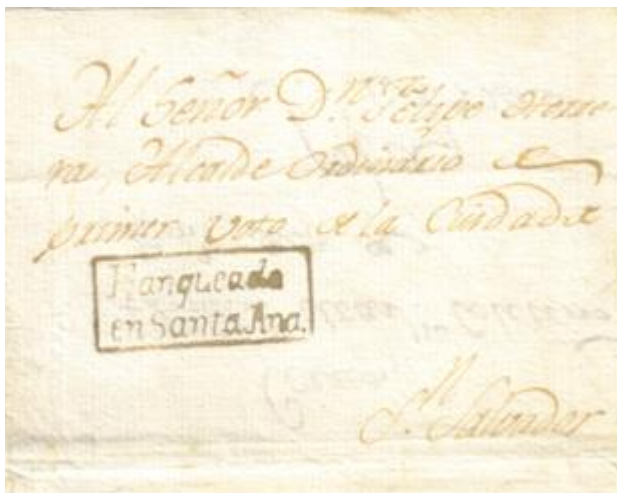 Al Señor Dn. Felipe Herre
ra, Alcalde Ordinario de
primer Voto de la Ciudad de
Franqueado
en Santa Ana.
Sn. Salvador